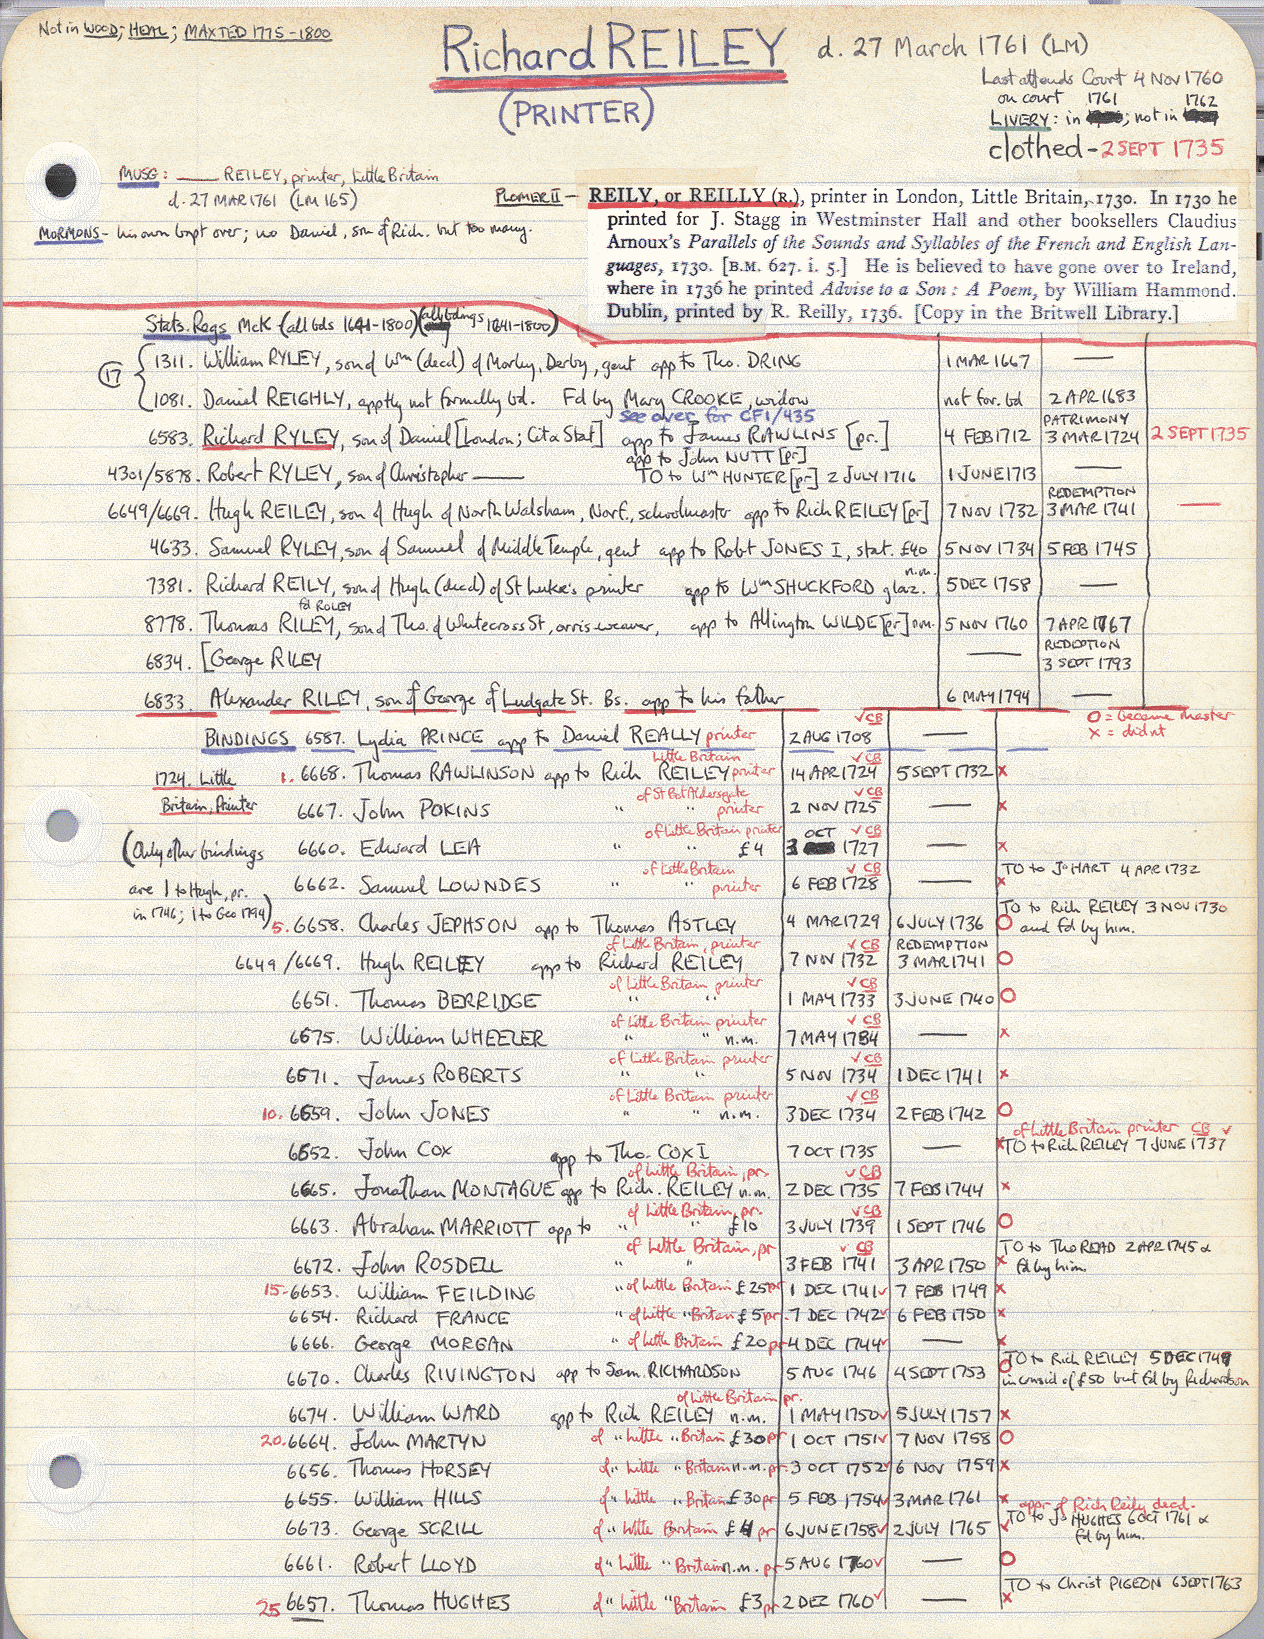 Not in WOOD; HEAL; MAXTED 1775-1800
Richard REILEY d. 27 March 1761 (LM)
(PRINTER)
Last attends Court 4 NOV 1760
on court 1761 1762
LIVERY: in ; not in
clothed - 2 SEPT 1735
MUSG: —— REILEY, printer, Little Britain
d. 27 MAR 1761 (LM 165)
MORMONS - his own bapt over; no Daniel, son of Rich. but too many.
PLOMER II - REILY, or REILLY (R.), printer in London, Little Britain, 1730. In 1730 he
printed for J. Stagg in Westminster Hall and other booksellers Claudius
Arnoux's Parallels of the Sounds and Syllables of the French and English Lan-
guages, 1730. [B.M. 627. i. 5.] He is believed to have gone over to Ireland,
where in 1736 he printed Advise to a Son: A Poem, by William Hammond.
Dublin, printed by R. Reilly, 1736. [Copy in the Britwell Library.]
Stats. Regs McK (all bds 1641-1800) (all bdings 1641-1800)
17
1311. William RYLEY, son of Wm (decd) of Morley, Derby, gent app to Tho. DRING 1 MAR 1667 ——
1081. Daniel REIGHLY, apptly not formally bd. Fd by Mary CROOKE, widow not for. bd 2 APR 1683
see over for CF1/435
6583. Richard RYLEY, son of Daniel [London; Cit & Stat] app to James RAWLINS [pr.] 4 FEB 1712 PATRIMONY 3 MAR 1724 2 SEPT 1735
app to John NUTT [pr]
4301/5878. Robert RYLEY, son of Christopher —— TO to Wm HUNTER [pr] 2 JULY 1716 1 JUNE 1713 ——
6649/6669. Hugh REILEY, son of Hugh of North Walsham, Norf., schoolmaster app to Rich REILEY [pr] 7 NOV 1732 REDEMPTION 3 MAR 1741 ——
4633. Samuel RYLEY, son of Samuel of Middle Temple, gent app to Robt JONES I, stat. £40 5 NOV 1734 5 FEB 1745
7381. Richard REILY, son of Hugh (decd) of St Luke's printer app to Wm SHUCKFORD glaz. n.m. 5 DEC 1758 ——
fd ROLEY
8778. Thomas RILEY, son of Tho. of Whitecross St, orris-weaver, app to Allington WILDE [pr] n.m. 5 NOV 1760 7 APR 1767
6834. [George RILEY —— REDEPTION 3 SEPT 1793
6833. Alexander RILEY, son of George of Ludgate St. Bs. app to his father 6 MAY 1794 ——
O = became master
x = didnt
BINDINGS 6587. Lydia PRINCE app to Daniel REALLY printer 2 AUG 1708 ✓CB ——
1724. Little
Britain. Printer
(Only other bindings
are 1 to Hugh, pr.
in 1746; 1 to Geo 1794)
Little Britain ✓CB
1. 6668. Thomas RAWLINSON app to Rich REILEY printer 14 APR 1724 5 SEPT 1732 x
of St Bot Aldersgate ✓CB
6667. John POKINS " " printer 2 NOV 1725 —— x
of Little Britain printer OCT ✓CB
6660. Edward LEA " " £4 3 1727 —— x
of Little Britain ✓CB TO to Jo HART 4 APR 1732
6662. Samuel LOWNDES " " printer 6 FEB 1728 —— x
TO to Rich REILEY 3 NOV 1730
5. 6658. Charles JEPHSON app to Thomas ASTLEY 4 MAR 1729 6 JULY 1736 O and fd by him.
of Little Britain, printer ✓CB REDEMPTION
6649/6669. Hugh REILEY app to Richard REILEY 7 NOV 1732 3 MAR 1741 O
of Little Britain printer ✓CB
6651. Thomas BERRIDGE " " 1 MAY 1733 3 JUNE 1740 O
of Little Britain printer ✓CB
6675. William WHEELER " " n.m. 7 MAY 1734 —— x
of Little Britain printer ✓CB
6671. James ROBERTS " " 5 NOV 1734 1 DEC 1741 x
of Little Britain printer ✓CB
10. 6659. John JONES " " n.m. 3 DEC 1734 2 FEB 1742 O
of Little Britain printer CB ✓
6652. John COX app to Tho. COX I 7 OCT 1735 —— x TO to Rich REILEY 7 JUNE 1737
of Little Britain, pr. ✓CB
6665. Jonathan MONTAGUE app to Rich. REILEY n.m. 2 DEC 1735 7 FEB 1744 x
of Little Britain, pr. ✓CB
6663. Abraham MARRIOTT app to " " £10 3 JULY 1739 1 SEPT 1746 O
of Little Britain, pr ✓CB TO to Tho READ 2 APR 1745 &
6672. John ROSDELL " " 3 FEB 1741 3 APR 1750 x fd by him
15. 6653. William FEILDING " of Little Britain £25 pr 1 DEC 1741 ✓ 7 FEB 1749 x
6654. Richard FRANCE " of Little " Britain £5 pr. 7 DEC 1742 ✓ 6 FEB 1750 x
6666. George MORGAN " of Little Britain £20 pr 4 DEC 1744 ✓ —— x
TO to Rich REILEY 5 DEC 1749
6670. Charles RIVINGTON app to Sam. RICHARDSON 5 AUG 1746 4 SEPT 1753 O in consid of £50 but fd by Richardson
of Little Britain pr.
6674. William WARD app to Rich REILEY n.m. 1 MAY 1750 ✓ 5 JULY 1757 x
20. 6664. John MARTYN of " Little " Britain £30 pr 1 OCT 1751 ✓ 7 NOV 1758 O
6656. Thomas HORSEY of " Little " Britain n.m. pr. 3 OCT 1752 ✓ 6 NOV 1759 x
6655. William HILLS of " Little " Britain £30 pr 5 FEB 1754 ✓ 3 MAR 1761 x
appr of Rich Reily decd.
6673. George SCRILL of " Little Britain £4 pr 6 JUNE 1758 ✓ 2 JULY 1765 ✓ TO to Jo HUGHES 6 OCT 1761 &
fd by him.
6661. Robert LLOYD of " Little " Britain n.m. pr 5 AUG 1760 ✓ —— O
TO to Christ PIGEON 6 SEPT 1763
25 6657. Thomas HUGHES of " Little " Britain £3 pr 2 DEC 1760 ✓ —— x